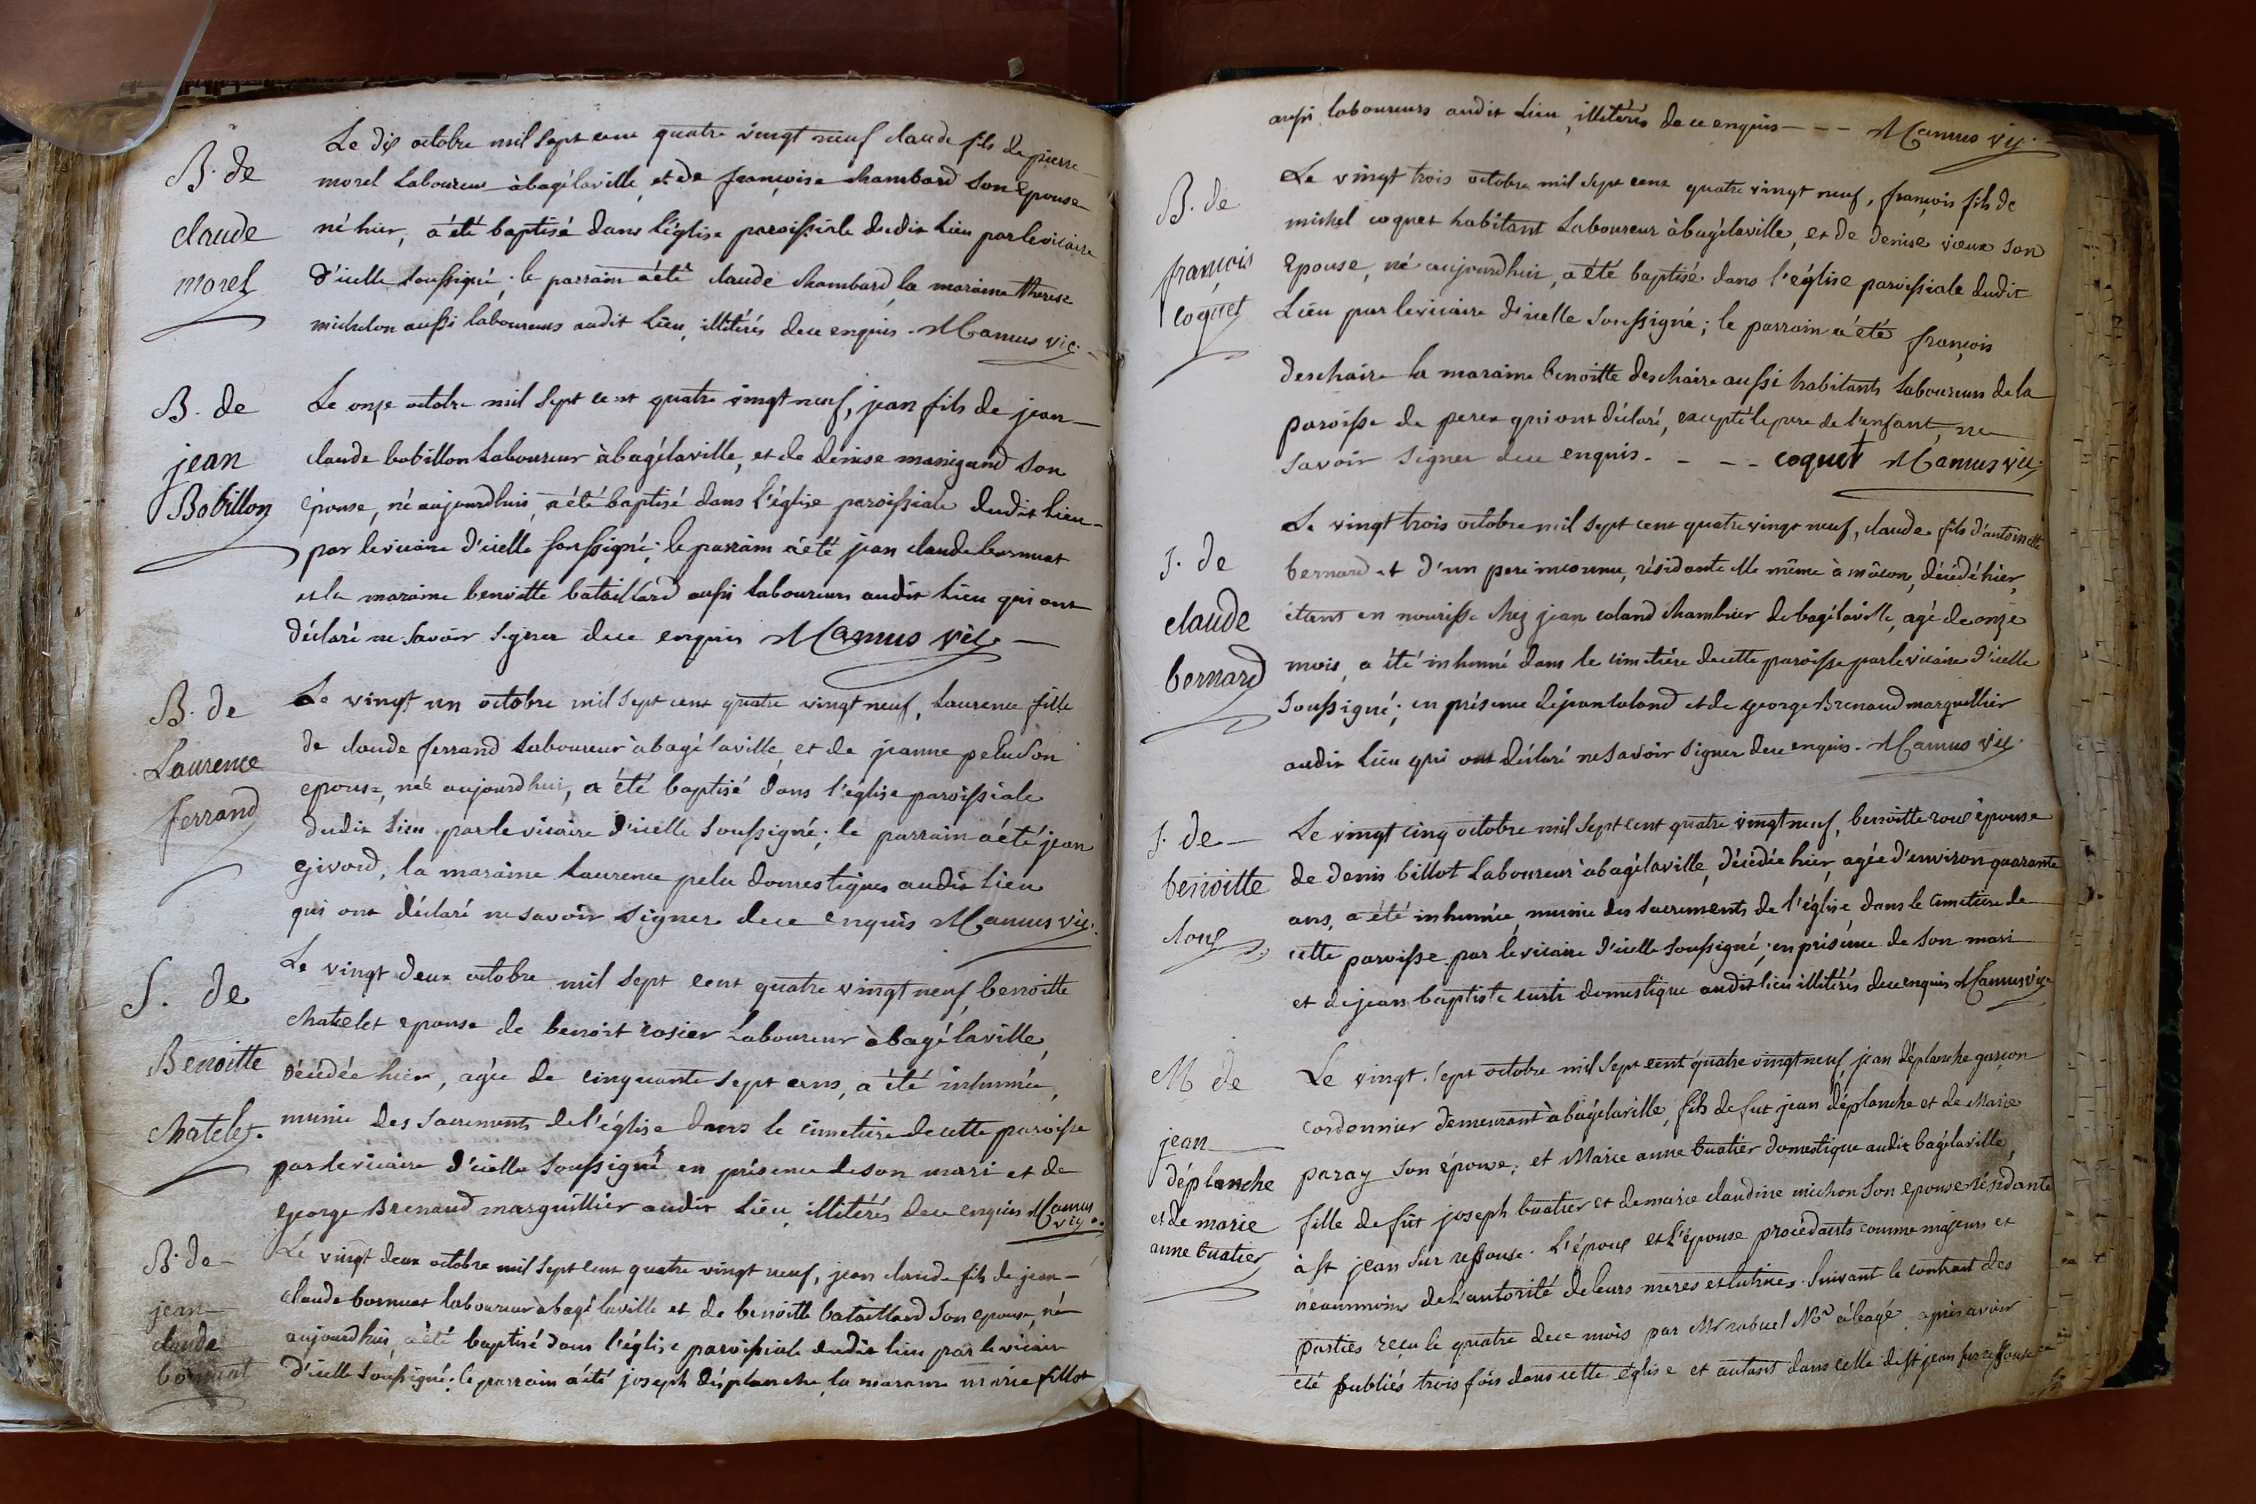 B. de
claude
morel
Le dix octobre mil sept cent quatre vingt neuf claude fils de pierre
morel Laboureur à bagélaville, et de françoise chambard son Epouse
né hier, a été baptisé dans l'église paroissiale dudit Lieu par le vicaire
d'icelle soussigné; le parrain a été claude chambard, la maraine therese
michelon aussi laboureurs audit Lieu, illitérés de ce enquis. M Camus vic.
B. de
jean
Bobillon
Le onze octobre mil sept cent quatre vingt neuf, jean fils de jean
claude bobillon Laboureur à bagélaville, et de denise manigand son
épouse, né aujourdhui, a été baptisé dans l'église paroissiale dudit Lieu
par le vicaire d'icelle soussigné; le parrain a été jean claude bornuat
et la maraine benoitte bataillard aussi Laboureurs audit Lieu qui ont
déclaré ne savoir signer de ce enquis M Camus vic.
B. de
Laurence
ferrand
Le vingt un octobre mil sept cent quatre vingt neuf, Laurence fille
de claude ferrand Laboureur à bagélaville, et de jeanne pelu son
epouse, née aujourdhui, a été baptisé dans l'eglise paroissiale
dudit Lieu par le vicaire d'icelle soussigné; le parrain a été jean
givord, la maraine Laurence pelu domestiques audit Lieu
qui ont déclaré ne savoir signer de ce enquis M Camus vic.
S. de
Benoitte
chatelet
Le vingt deux octobre mil sept cent quatre vingt neuf, benoitte
chatelet epouse de benoit rosier Laboureur à bagélaville,
décédée hier, agée de cinquante sept ans, a été inhumée,
munie des sacrements de l'église dans le cimetiere de cette paroisse
par le vicaire d'icelle soussigné en présence de son mari et de
george Brenaud marguillier audit Lieu, illitérés de ce enquis M Camus
vic.
B. de
jean
claude
bornuat
Le vingt deux octobre mil sept cent quatre vingt neuf, jean claude fils de jean
claude bornuat laboureur à bagélaville et de benoitte bataillard son epouse, né
aujourdhui, a été baptisé dans l'église paroissiale dudit lieu par le vicaire
d'icelle soussigné; le parrain a été joseph déplanche, la maraine marie fillot
aussi laboureurs audit Lieu, illitérés de ce enquis M Camus vic.
B. de
françois
coquet
Le vingt trois octobre mil sept cent quatre vingt neuf, françois fils de
michel coquet habitant Laboureur à bagélaville, et de denise vieux son
Epouse, né aujourdhui, a été baptisé dans l'eglise paroissiale dudit
Lieu par le vicaire d'icelle soussigné; le parrain a été françois
deschaire la maraine benoitte deschaire aussi habitants Laboureurs de la
paroisse de perex qui ont déclaré, excepté le pere de l'enfant, ne
savoir signer de ce enquis. coquet M Camus vic.
S. de
claude
bernard
Le vingt trois octobre mil sept cent quatre vingt neuf, claude fils d'antoinette
bernard et d'un pere inconnu, résidante elle même à mâcon, décédé hier,
étant en nourisse chez jean coland chambrier de bagélaville, agé de onze
mois, a été inhumé dans le cimetiére de cette paroisse par le vicaire d'icelle
soussigné; en présence de jean coland et de george Brenaud marguillier
audit Lieu qui ont déclaré ne savoir signer de ce enquis. M Camus vic.
S. de
benoitte
roux
Le vingt cinq octobre mil sept cent quatre vingt neuf, benoitte roux épouse
de denis billot Laboureur à bagélaville, décédée hier, agée d'environ quarante
ans, a été inhumée, munie des sacrements de l'église dans le cimetiere de
cette paroisse par le vicaire d'icelle soussigné, en présence de son mari
et de jean baptiste curti domestique audit lieu illitérés de ce enquis M Camus vic.
M de
jean
déplanche
et de marie
anne buatier
Le vingt sept octobre mil sept cent quatre vingt neuf, jean déplanche garçon
cordonnier demeurant à bagélaville, fils de fut jean déplanche et de Marie
paray son épouse; et Marie anne buatier domestique audit bagélaville,
fille de fut joseph buatier et de marie claudine michon son epouse résidante
à st jean sur ressouse. L'époux et L'épouse procédants comme majeurs et
néanmoins de l'autorité de leurs meres et tutrices. Suivant le contract des
parties reçu le quatre de ce mois par Mr rabuel Nre à bagé, apres avoir
été publiés trois fois dans cette église et autant dans celle de st jean sur ressouse